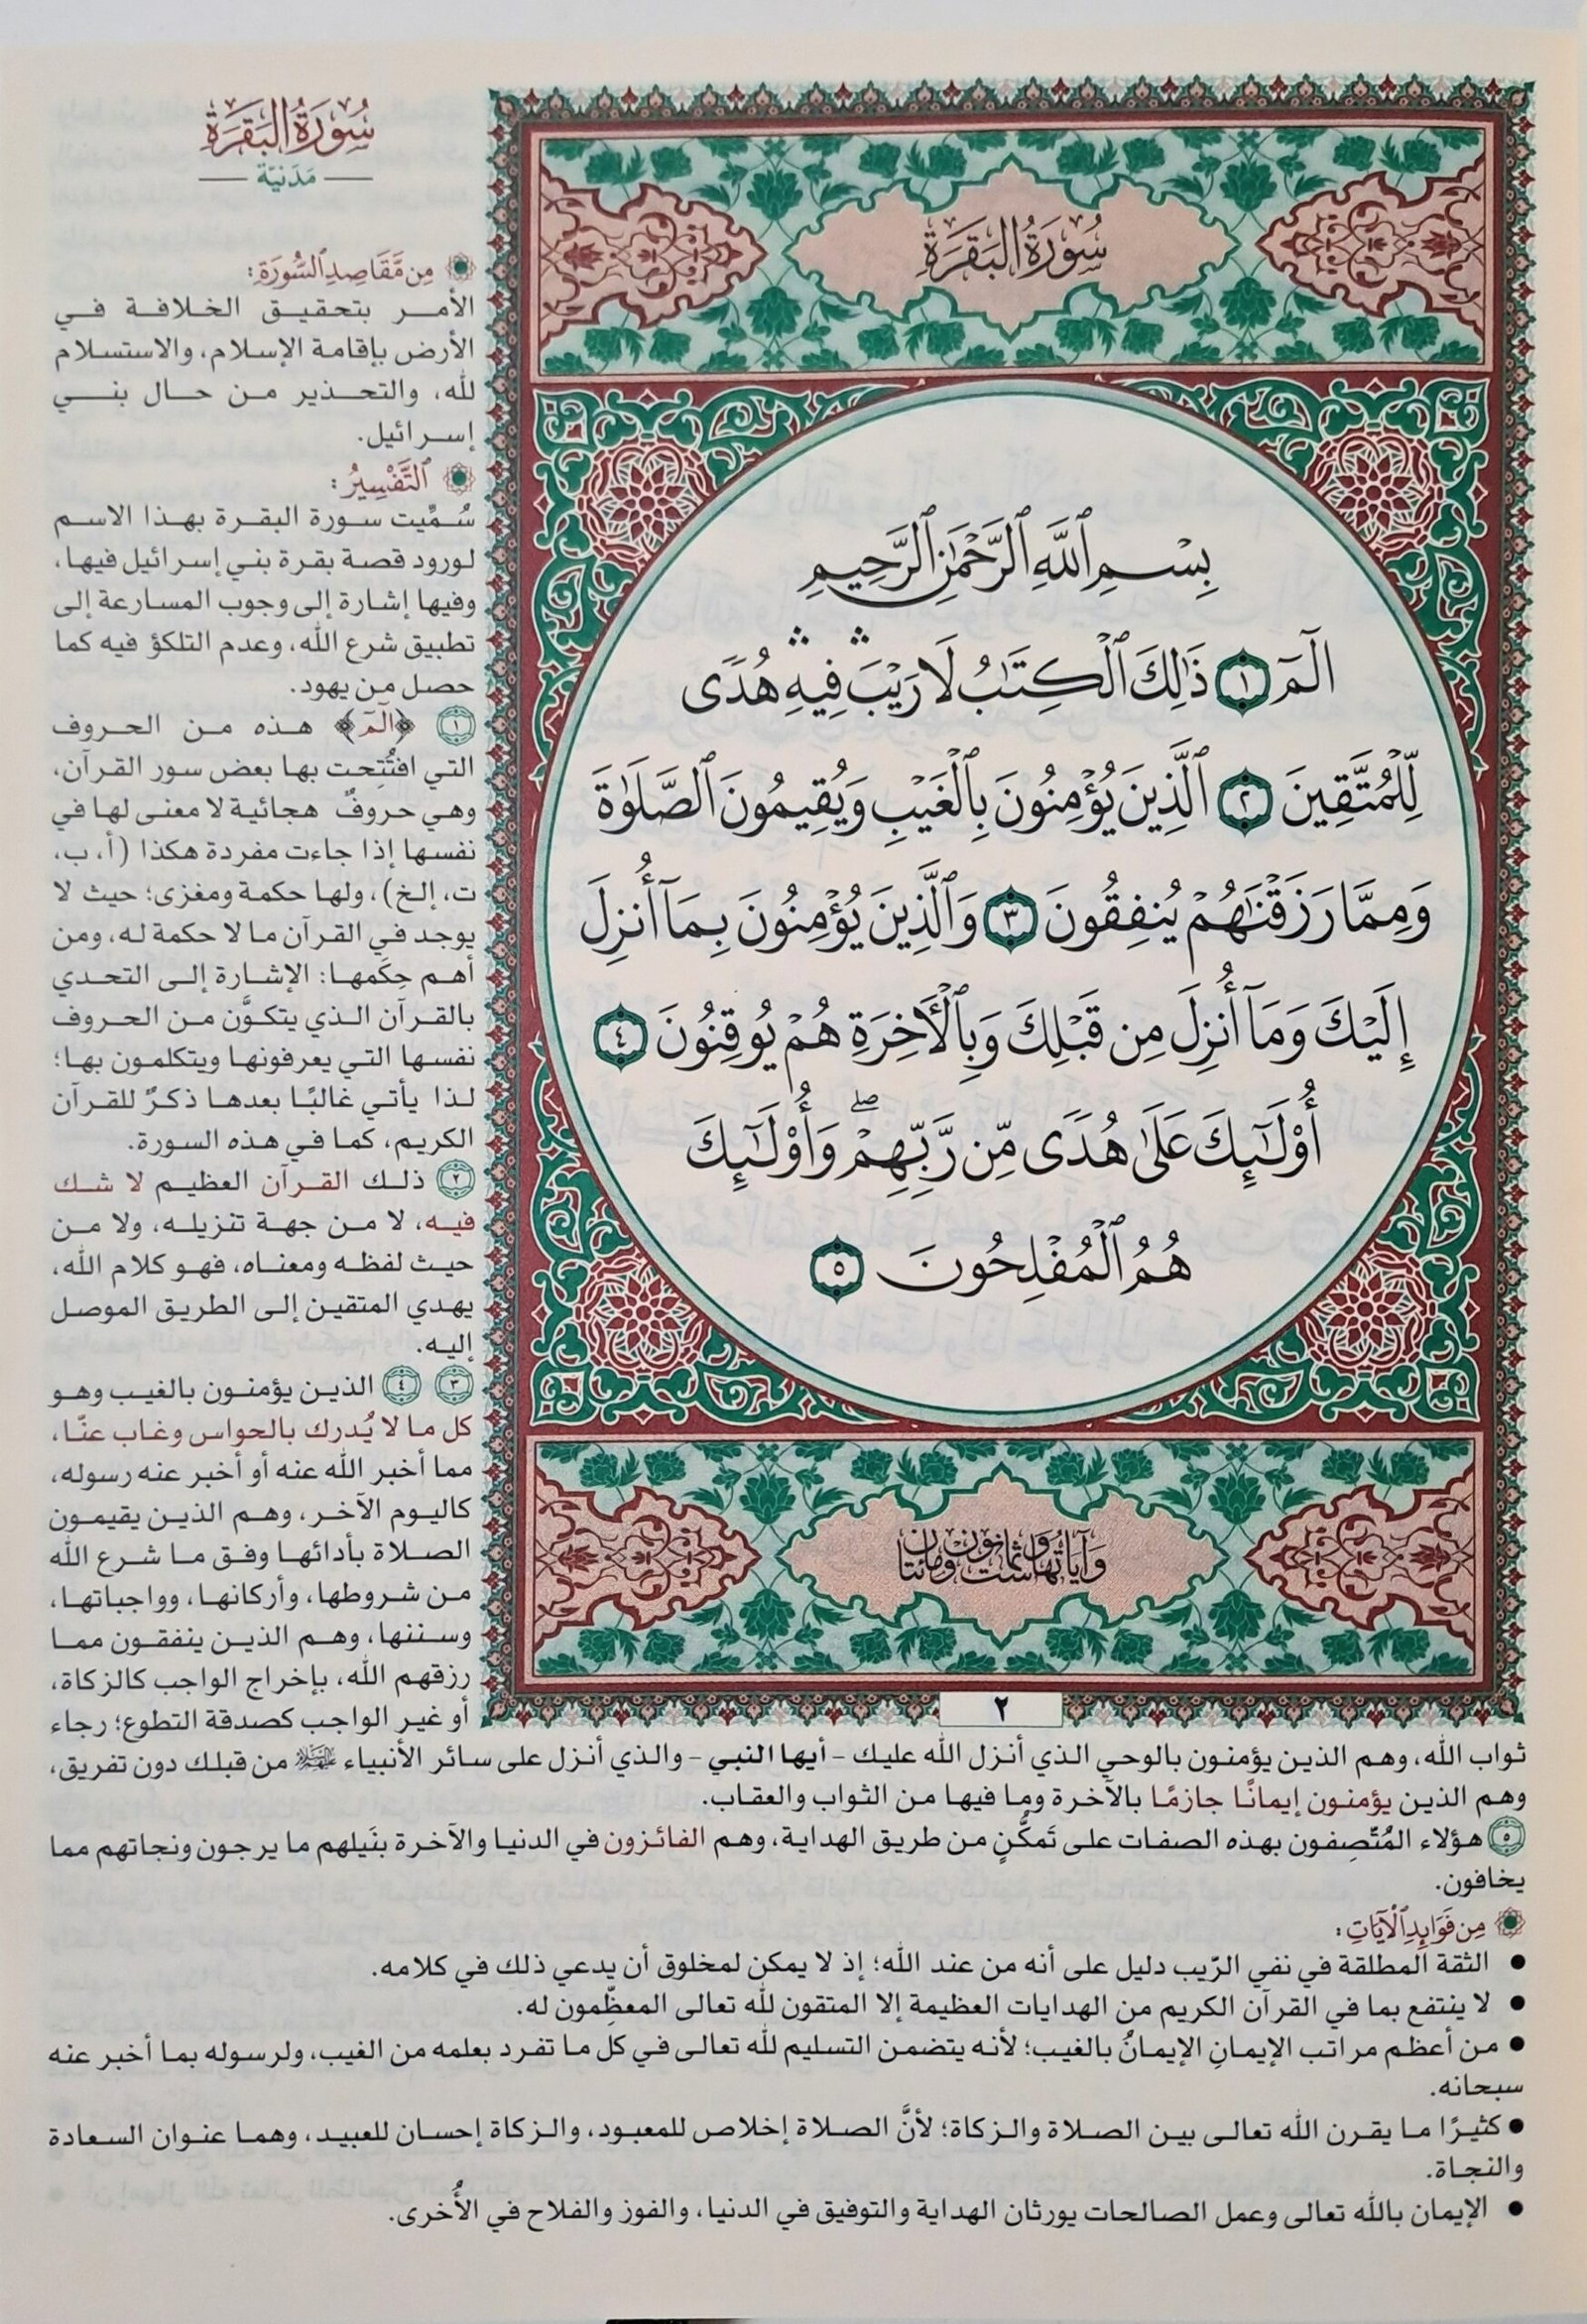 سُورَةُ البَقَرَةِ
مَدَنيّة
مِن مَّقَاصِدِ ٱلسُّورَةِ:
الأمر بتحقيق الخلافة في
الأرض بإقامة الإسلام، والاستسلام
لله، والتحذير من حال بني
إسرائيل.
ٱلتَّفْسِيرُ:
سُمِّيت سورة البقرة بهذا الاسم
لورود قصة بقرة بني إسرائيل فيها،
وفيها إشارة إلى وجوب المسارعة إلى
تطبيق شرع الله، وعدم التلكؤ فيه كما
حصل من يهود.
١ ﴿الٓمٓ﴾ هذه من الحروف
التي افتُتِحت بها بعض سور القرآن،
وهي حروفٌ هجائية لا معنى لها في
نفسها إذا جاءت مفردة هكذا (أ، ب،
ت، إلخ)، ولها حكمة ومغزى؛ حيث لا
يوجد في القرآن ما لا حكمة له، ومن
أهم حِكَمها: الإشارة إلى التحدي
بالقرآن الذي يتكوَّن من الحروف
نفسها التي يعرفونها ويتكلمون بها؛
لذا يأتي غالبًا بعدها ذكرٌ للقرآن
الكريم، كما في هذه السورة.
٢ ذلك القرآن العظيم لا شك
فيه، لا من جهة تنزيله، ولا من
حيث لفظه ومعناه، فهو كلام الله،
يهدي المتقين إلى الطريق الموصل
إليه.
٣ ٤ الذين يؤمنون بالغيب وهو
كل ما لا يُدرك بالحواس وغاب عنّا،
مما أخبر الله عنه أو أخبر عنه رسوله،
كاليوم الآخر، وهم الذين يقيمون
الصلاة بأدائها وفق ما شرع الله
من شروطها، وأركانها، وواجباتها،
وسننها، وهم الذين ينفقون مما
رزقهم الله، بإخراج الواجب كالزكاة،
أو غير الواجب كصدقة التطوع؛ رجاء
سُورَةُ البَقَرَةِ
بِسْمِ ٱللَّهِ ٱلرَّحْمَٰنِ ٱلرَّحِيمِ
الٓمٓ ١ ذَٰلِكَ ٱلْكِتَٰبُ لَا رَيْبَۛ فِيهِۛ هُدًى
لِّلْمُتَّقِينَ ٢ ٱلَّذِينَ يُؤْمِنُونَ بِٱلْغَيْبِ وَيُقِيمُونَ ٱلصَّلَوٰةَ
وَمِمَّا رَزَقْنَٰهُمْ يُنفِقُونَ ٣ وَٱلَّذِينَ يُؤْمِنُونَ بِمَآ أُنزِلَ
إِلَيْكَ وَمَآ أُنزِلَ مِن قَبْلِكَ وَبِٱلْأَخِرَةِ هُمْ يُوقِنُونَ ٤
أُوْلَٰٓئِكَ عَلَىٰ هُدًى مِّن رَّبِّهِمْۖ وَأُوْلَٰٓئِكَ
هُمُ ٱلْمُفْلِحُونَ ٥
وَآيَاتُهَا سِتٌّ وَثَمَانُونَ وَمِائَتَانِ
٢
ثواب الله، وهم الذين يؤمنون بالوحي الذي أنزل الله عليك - أيها النبي - والذي أنزل على سائر الأنبياء عليهم السلام من قبلك دون تفريق،
وهم الذين يؤمنون إيمانًا جازمًا بالآخرة وما فيها من الثواب والعقاب.
٥ هؤلاء المُتّصِفون بهذه الصفات على تَمكُّنٍ من طريق الهداية، وهم الفائزون في الدنيا والآخرة بنَيلهم ما يرجون ونجاتهم مما
يخافون.
مِن فَوَائِدِ ٱلْآيَاتِ:
• الثقة المطلقة في نفي الرّيب دليل على أنه من عند الله؛ إذ لا يمكن لمخلوق أن يدعي ذلك في كلامه.
• لا ينتفع بما في القرآن الكريم من الهدايات العظيمة إلا المتقون لله تعالى المعظِّمون له.
• من أعظم مراتب الإيمانِ الإيمانُ بالغيب؛ لأنه يتضمن التسليم لله تعالى في كل ما تفرد بعلمه من الغيب، ولرسوله بما أخبر عنه
سبحانه.
• كثيرًا ما يقرن الله تعالى بين الصلاة والزكاة؛ لأنَّ الصلاة إخلاص للمعبود، والزكاة إحسان للعبيد، وهما عنوان السعادة
والنجاة.
• الإيمان بالله تعالى وعمل الصالحات يورثان الهداية والتوفيق في الدنيا، والفوز والفلاح في الأُخرى.